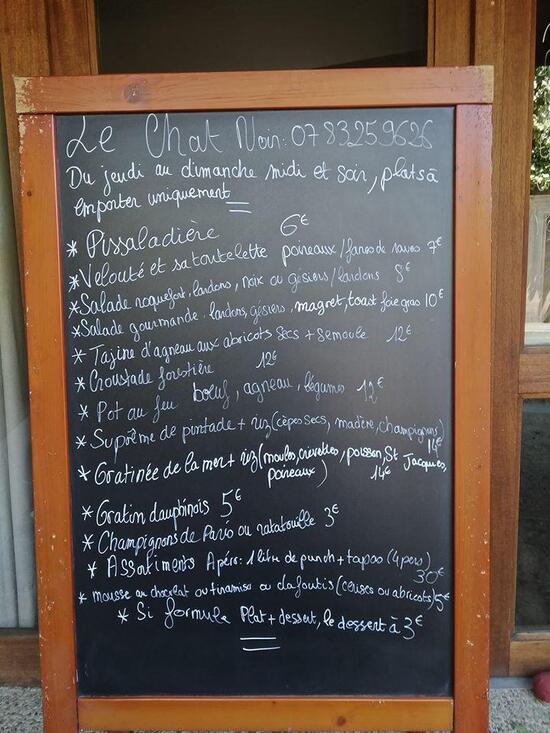 Le Chat Noir: 0783259626
Du jeudi au dimanche midi et soir, plats à
emporter uniquement
* Pissaladière 6€
* Velouté et sa tartelette poireaux/fanes de raves 7€
* Salade roquefort, lardons, noix ou gésiers/lardons 8€
* Salade gourmande. lardons, gésiers, magret, toast foie gras 10€
* Tajine d'agneau aux abricots secs + semoule 12€
* Croustade forestière 12€
* Pot au feu boeuf, agneau, légumes 12€
* Suprême de pintade + riz (cèpes secs, madère, champignons)
14€
* Gratinée de la mer + riz (moules, crevettes, poisson, St Jacques,
poireaux) 14€
* Gratin dauphinois 5€
* Champignons de Paris ou ratatouille 3€
* Assortiments Apéro: 1 litre de punch + tapas (4 pers)
30€
* mousse au chocolat ou tiramisu ou clafoutis (cerises ou abricots) 5€
* Si formule Plat + dessert, le dessert à 3€